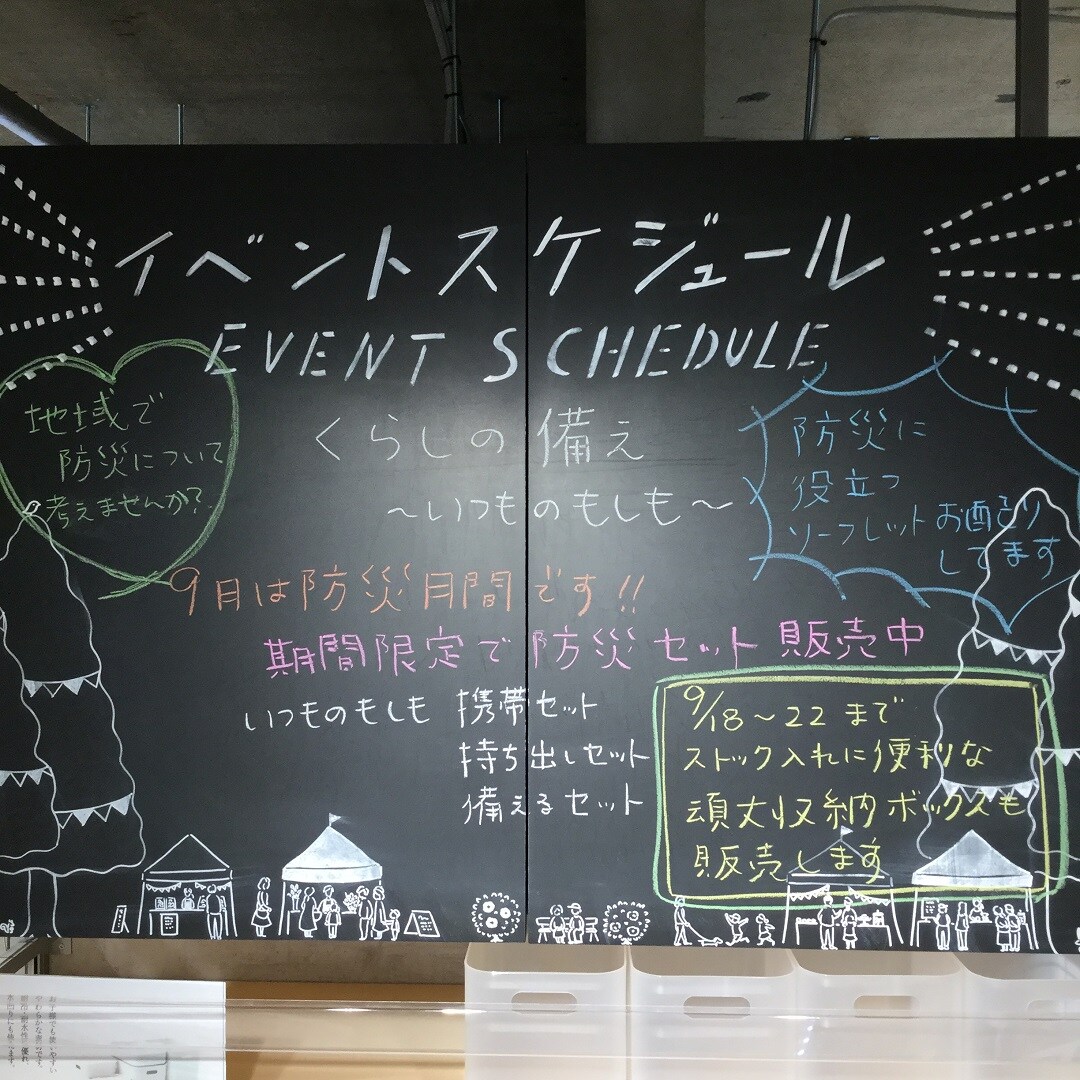 イベントスケジュール
EVENT SCHEDULE
地域で
防災について
考えませんか?
くらしの備え
～いつものもしも～
防災に
役立つ
リーフレットお配り
してます
9月は防災月間です!!
期間限定で防災セット販売中
いつものもしも 携帯セット
持ち出しセット
備えるセット
9/18～22まで
ストック入れに便利な
頑丈収納ボックスも
販売します